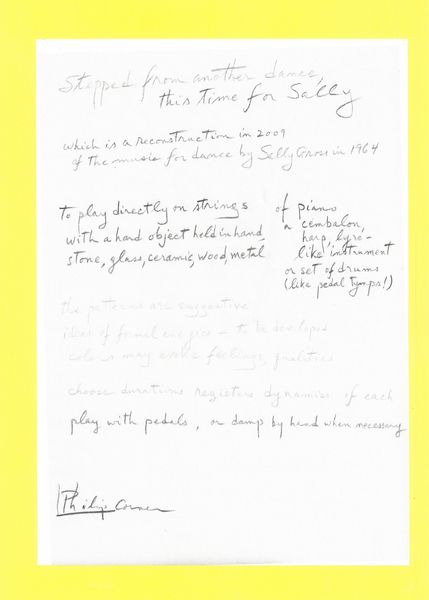 Stepped from another dance,
this time for Sally
which is a reconstruction in 2009
of the music for dance by Sally Gross in 1964
to play directly on strings of piano
with a hard object held in hand a cembalon,
stone, glass, ceramic, wood, metal harp, lyre-
like instrument
or set of drums
(like pedal tymps!)
the patterns are suggestive
ideas of formal energies – to be developed
colors may evoke feelings, qualities
choose durations registers dynamics of each
play with pedals, or damp by hand when necessary
Philip Corner